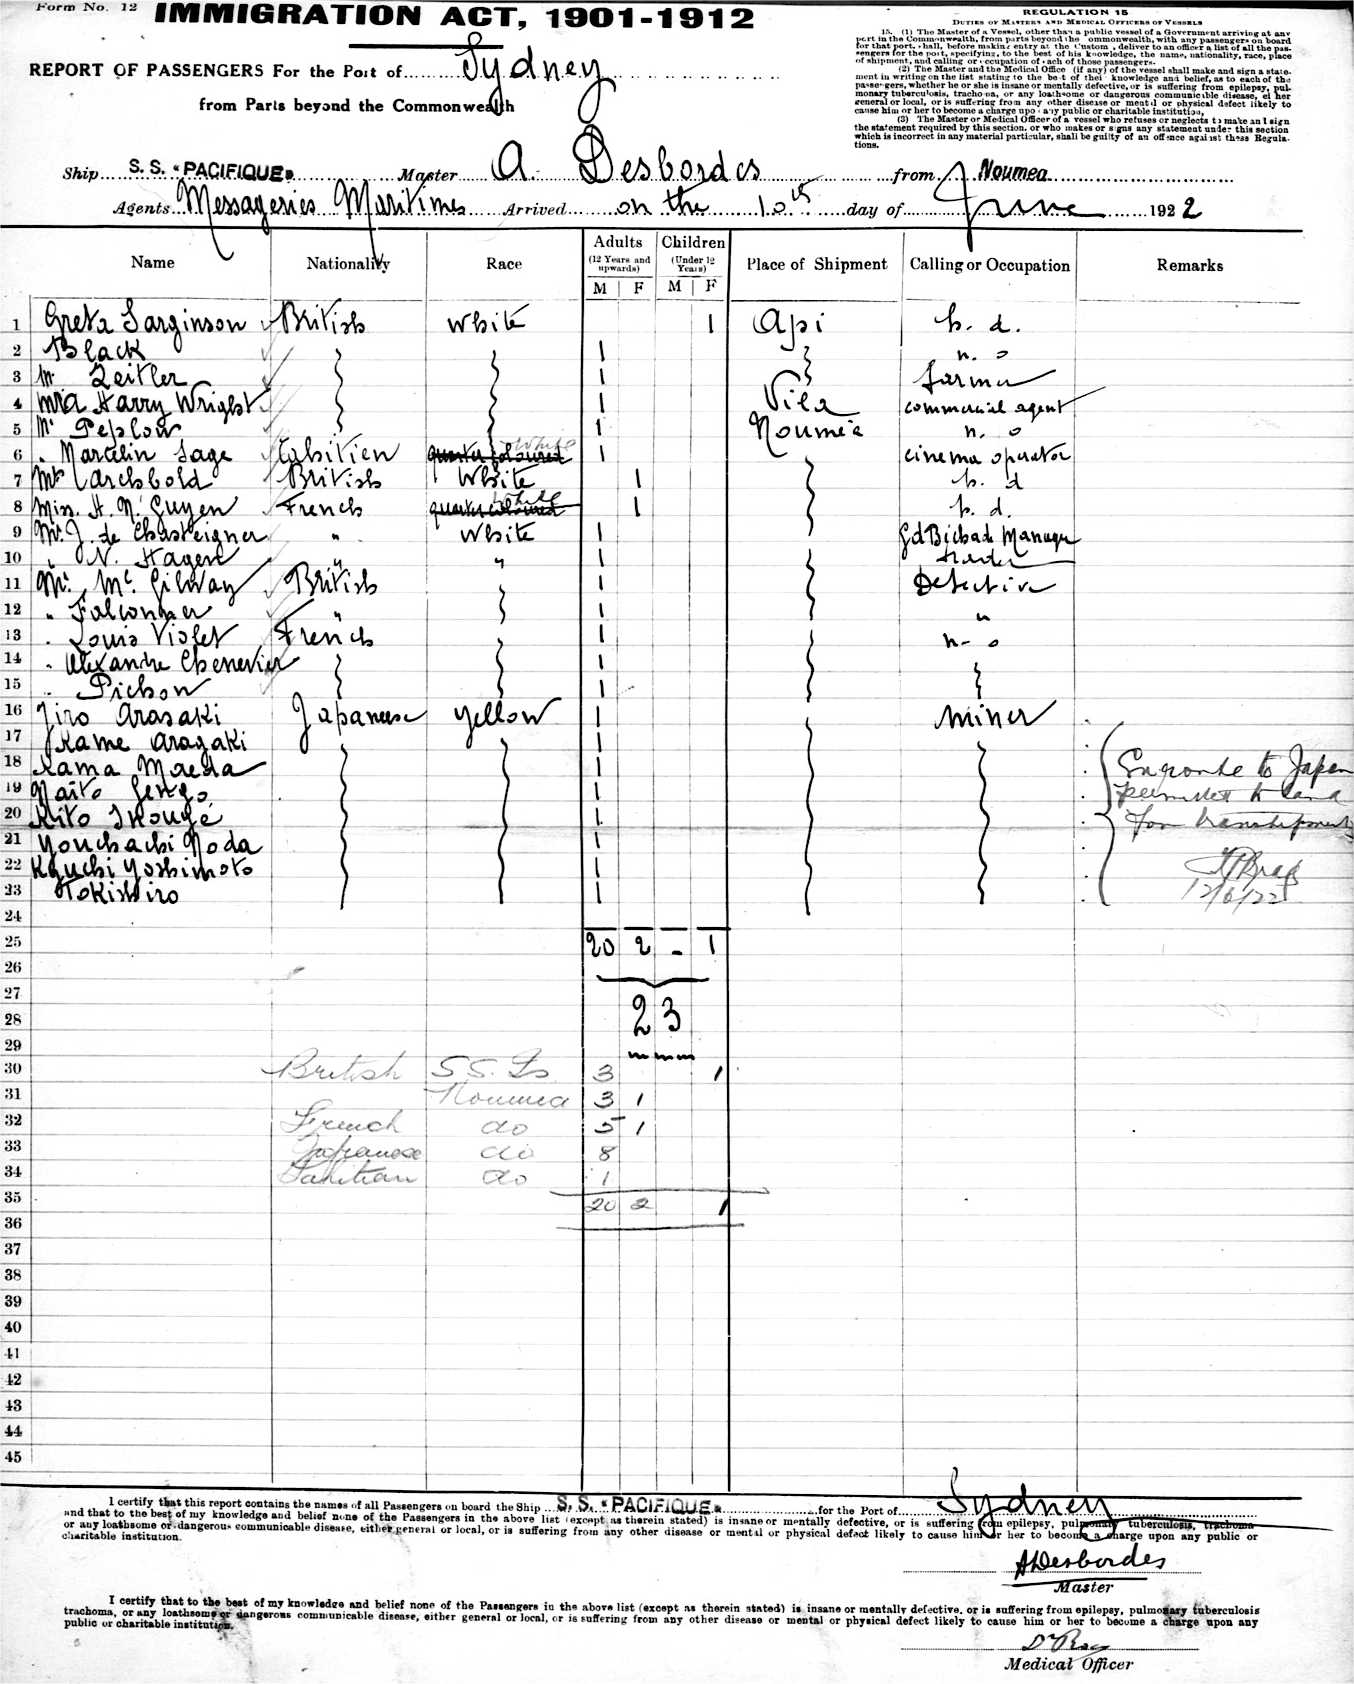 Form No. 12
IMMIGRATION ACT, 1901-1912
REPORT OF PASSENGERS For the Port of Sydney
from Parts beyond the Commonwealth
REGULATION 15
DUTIES OF MASTERS AND MEDICAL OFFICERS OF VESSELS
15. (1) The Master of a Vessel, other than a public vessel of a Government arriving at any
port in the Commonwealth, from parts beyond the ommonwealth, with any passengers on board
for that port, shall, before making entry at the Custom , deliver to an officer a list of all the pas-
sengers for the port, specifying, to the best of his knowledge, the name, nationality, race, place
of shipment, and calling or occupation of each of those passengers.
(2) The Master and the Medical Office (if any) of the vessel shall make and sign a state-
ment in writing on the list stating to the best of their knowledge and belief, as to each of the
passengers, whether he or she is insane or mentally defective, or is suffering from epilepsy, pul-
monary tuberculosis, trachoma, or any loathsome or dangerous communicable disease, either
general or local, or is suffering from any other disease or mental or physical defect likely to
cause him or her to become a charge upon any public or charitable institution,
(3) The Master or Medical Officer of a vessel who refuses or neglects to make and sign
the statement required by this section, or who makes or signs any statement under this section
which is incorrect in any material particular, shall be guilty of an offence against these Regula-
tions.
Ship S.S. "PACIFIQUE" Master A. Desbordes from Noumea
Agents Messageries Maritimes Arrived on the 10th day of June 1922
Name Nationality Race Adults (12 Years and upwards) M F Children (Under 12 Years) M F Place of Shipment Calling or Occupation Remarks
1 Greta Sarginson British White 1 Api h. d.
2 Black 1 n. o
3 Mr Zeitler 1 farmer
4 Harry Wright 1 Vila commercial agent
5 Mr Peplow 1 Noumea n. o
6 " Marcelin Sage Tahitien quarter coloured White 1 cinema operator
7 Mrs Archbold British White 1 h. d
8 Miss H. N'Guyen French quarter coloured White 1 h. d.
9 Mr J. de Chasteigner " White 1 Manager
10 " N. Hagen " " 1 trader
11 Mr. Mc. Gilway British 1 Detective
12 " Falconner " 1 "
13 " Louis Violet French 1 n- o
14 " Alexandre Chenevier 1
15 " Pichon 1
16 Jiro Arasaki Japanese yellow 1 miner
17 Kame Aragaki 1
18 Kama Maeda 1 Enroute to Japan
19 Naito Gengo 1 permitted to land
20 Kito Ikougé 1 for transhipment
21 Youchachi Noda 1
22 Kguchi Yoshimoto 1
23 Tokishiro 1 12/6/22
24
25 20 2 - 1
26
27
28 23
29
30 British S.S. Is 3 1
31 Noumea 3 1
32 French do 5 1
33 Japanese do 8
34 Tahitian do 1
35 20 2 1
36
37
38
39
40
41
42
43
44
45
I certify that this report contains the names of all Passengers on board the Ship S. S. "PACIFIQUE" for the Port of Sydney
and that to the best of my knowledge and belief none of the Passengers in the above list (except as therein stated) is insane or mentally defective, or is suffering from epilepsy, pulmonary tuberculosis, trachoma
or any loathsome or dangerous communicable disease, either general or local, or is suffering from any other disease or mental or physical defect likely to cause him or her to become a charge upon any public or
charitable institution.
ADesbordes
Master
I certify that to the best of my knowledge and belief none of the Passengers in the above list (except as therein stated) is insane or mentally defective, or is suffering from epilepsy, pulmonary tuberculosis
trachoma, or any loathsome or dangerous communicable disease, either general or local, or is suffering from any other disease or mental or physical defect likely to cause him or her to become a charge upon any
public or charitable institution.
Medical Officer